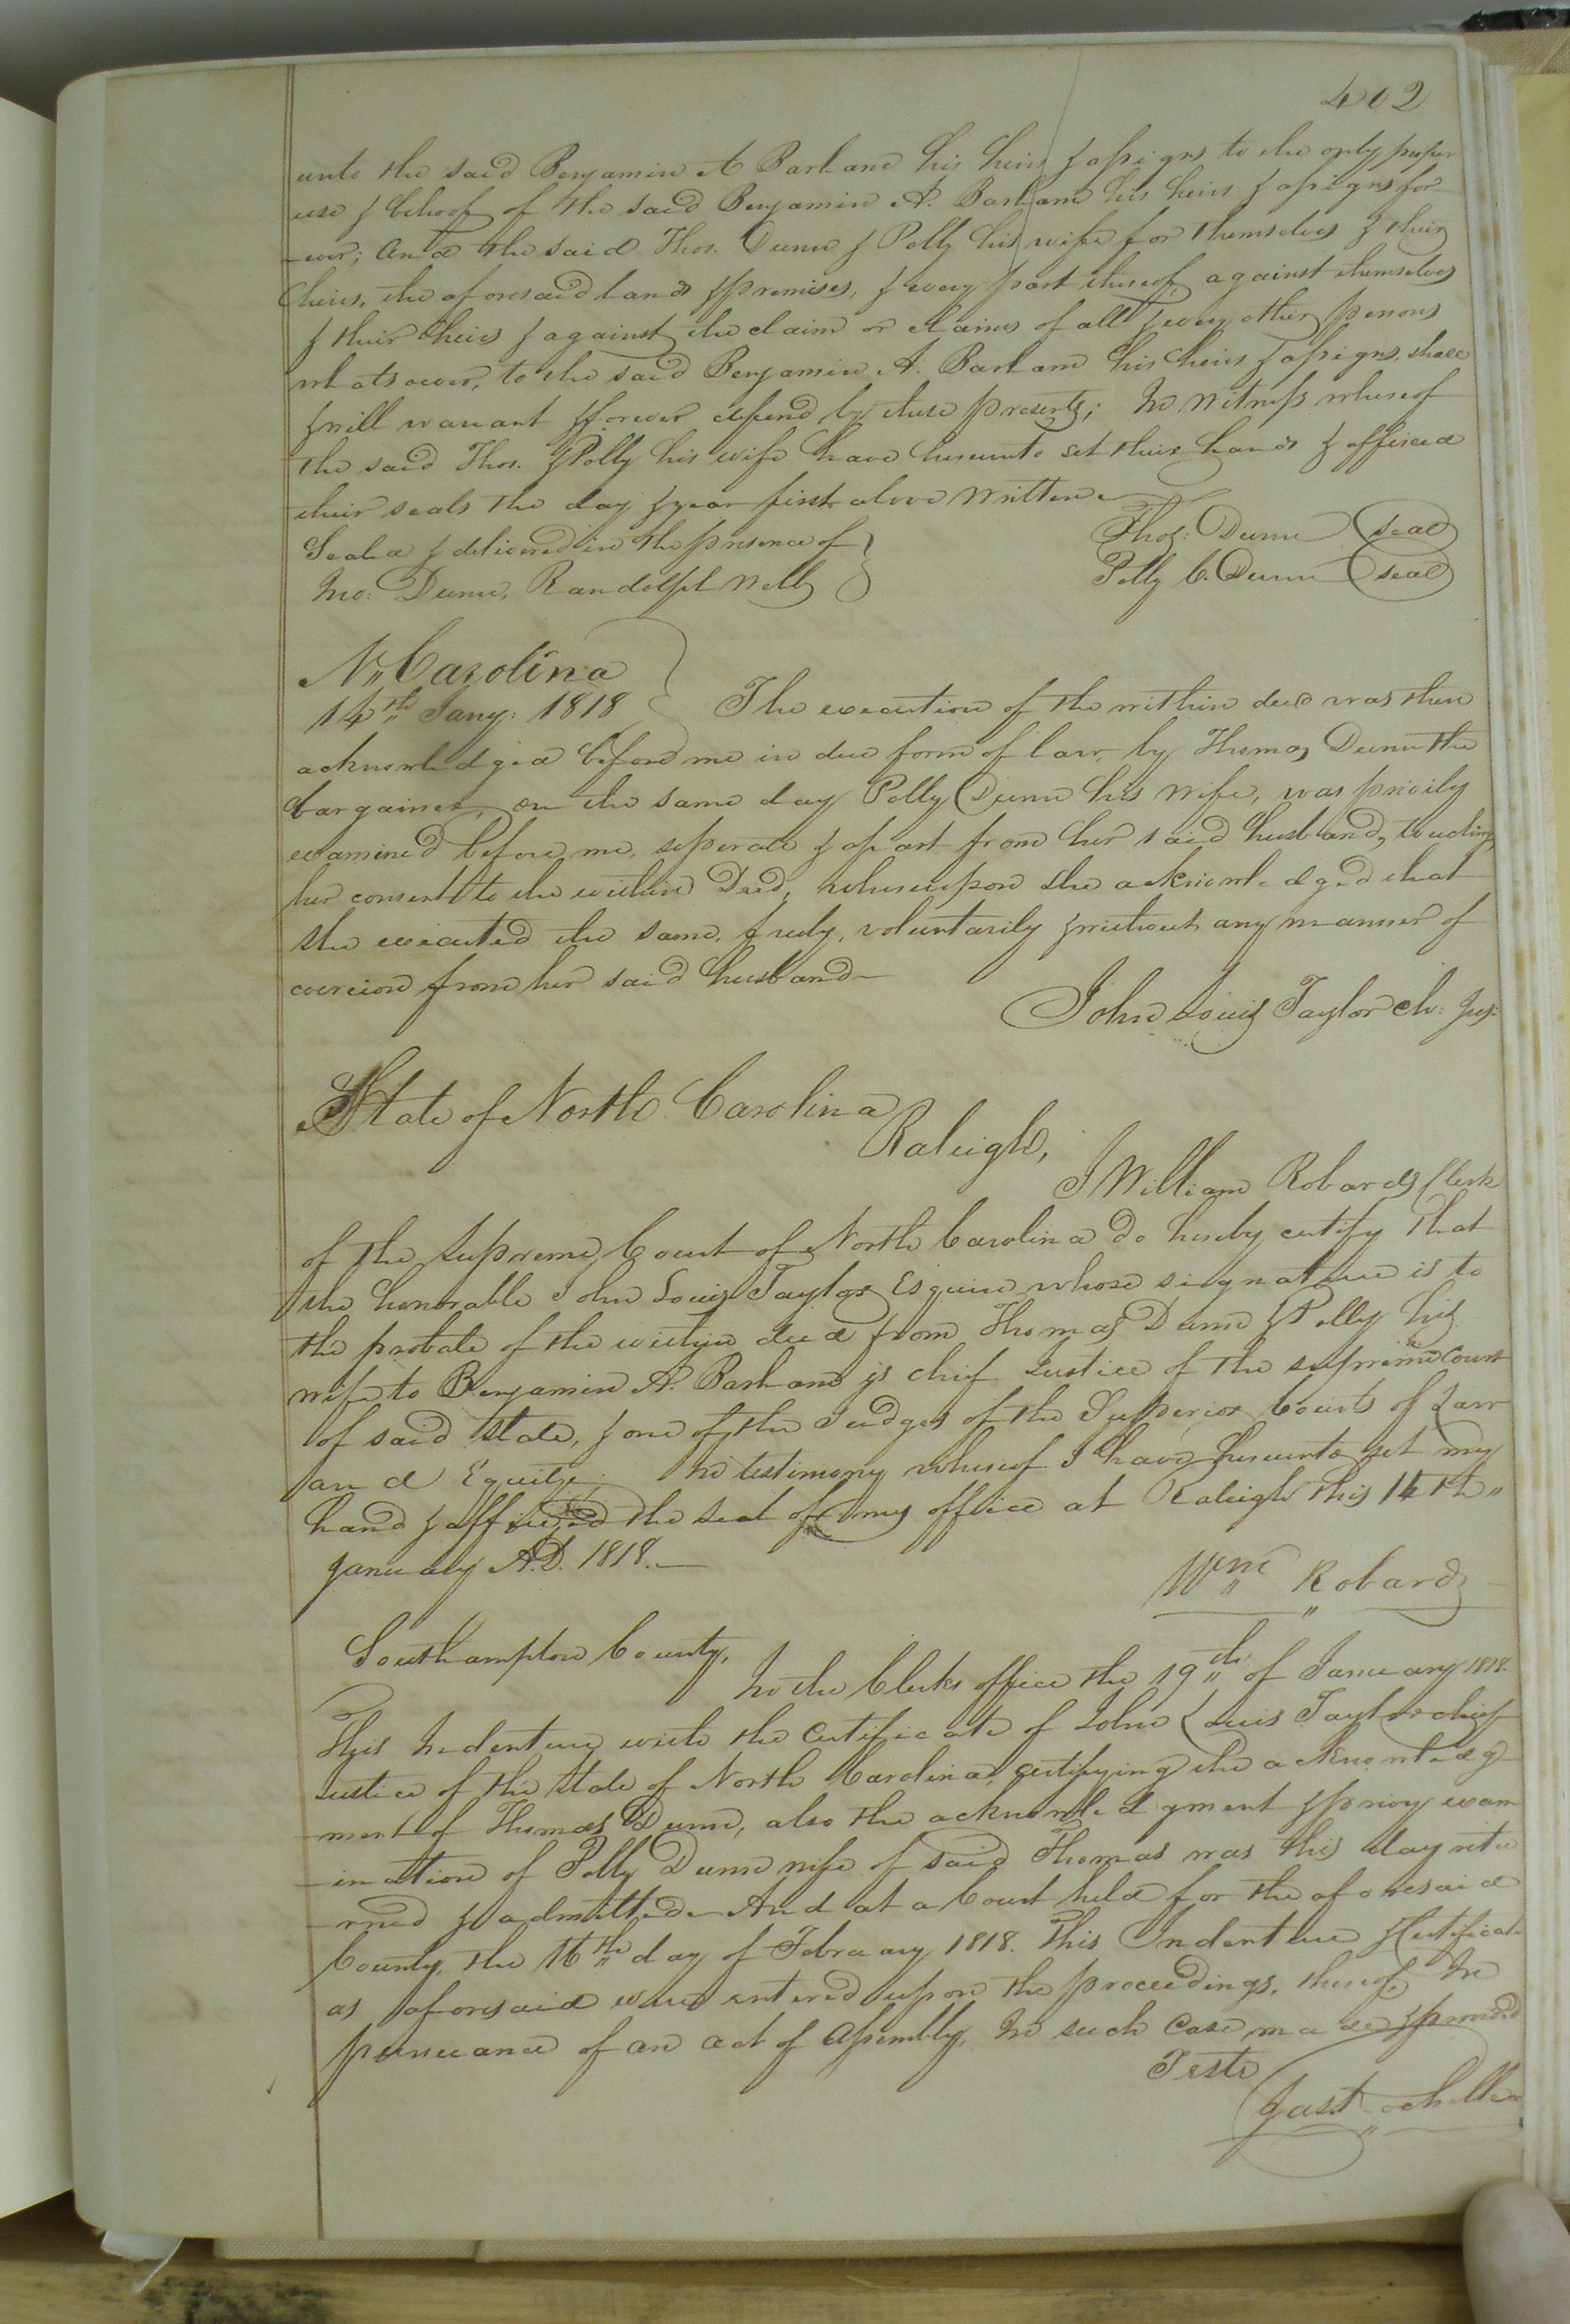 402
unto the said Benjamin A Barham his heirs & assigns to the only proper
use & behoof of the said Benjamin A. Barham his heirs & assigns for
-ever; And the said Thos. Dunn & Polly his wife for themselves & their
heirs, the aforesaid lands & premises, & every part thereof, against themselves
& their heirs & against the claim or claims of all & every other persons
whatsoever, to the said Benjamin A. Barham his heirs & assigns, shall
& will warrant & forever defend by these presents; In Witness whereof
the said Thos. & Polly his wife have hereunto set their hands & affixed
their seals the day & year first above written
Seald & delivered in the presence of
Thos: Dunn seal
Jno: Dunn, Randolph Webb
Polly C. Dunn seal
N" Carolina
14th Jany: 1818 The execution of the within deed was then
acknowledged before me in due form of law, by Thomas Dunn the
bargainer, on the same day Polly Dunn his wife, was privily
examined before me, seperate & apart from her said husband, touching
her consent to the within Deed, whereupon she acknowledged that
she executed the same, freely, voluntarily & without any manner of
coercion from her said husband
John Louis Taylor ch: Jus:
State of North Carolina
Raleigh,
I William Robards Clerk
of the Supreme Court of North Carolina do hereby certify that
the honorable John Louis Taylor Esquire whose signature is to
the probate of the within deed from Thomas Dunn & Polly his
wife to Benjamin A. Barham is chief Justice of the supreme Court
of said State, & one of the Judges of the Superior Courts of Law
and Equity. In testimony whereof I have hereunto set my
hand & affixed the seal of my office at Raleigh this 14th"
January A.D. 1818.
Wm Robards
Southampton County,
In the Clerks office the 19th of January 1818.
This Indenture with the Certificate of John Louis Taylor chief
Justice of the State of North Carolina, certifying the acknowledg
-ment of Thomas Dunn, also the acknowledgment & privy exam
-ination of Polly Dunn wife of said Thomas was this day retu
-rned & admitted And at a Court held for the aforesaid
County, the 16th day of February 1818. This Indenture & Certificate
as aforesaid were entered upon the proceedings, thereof, In
pursuance of an act of Assembly, In such Case made & provided
Teste